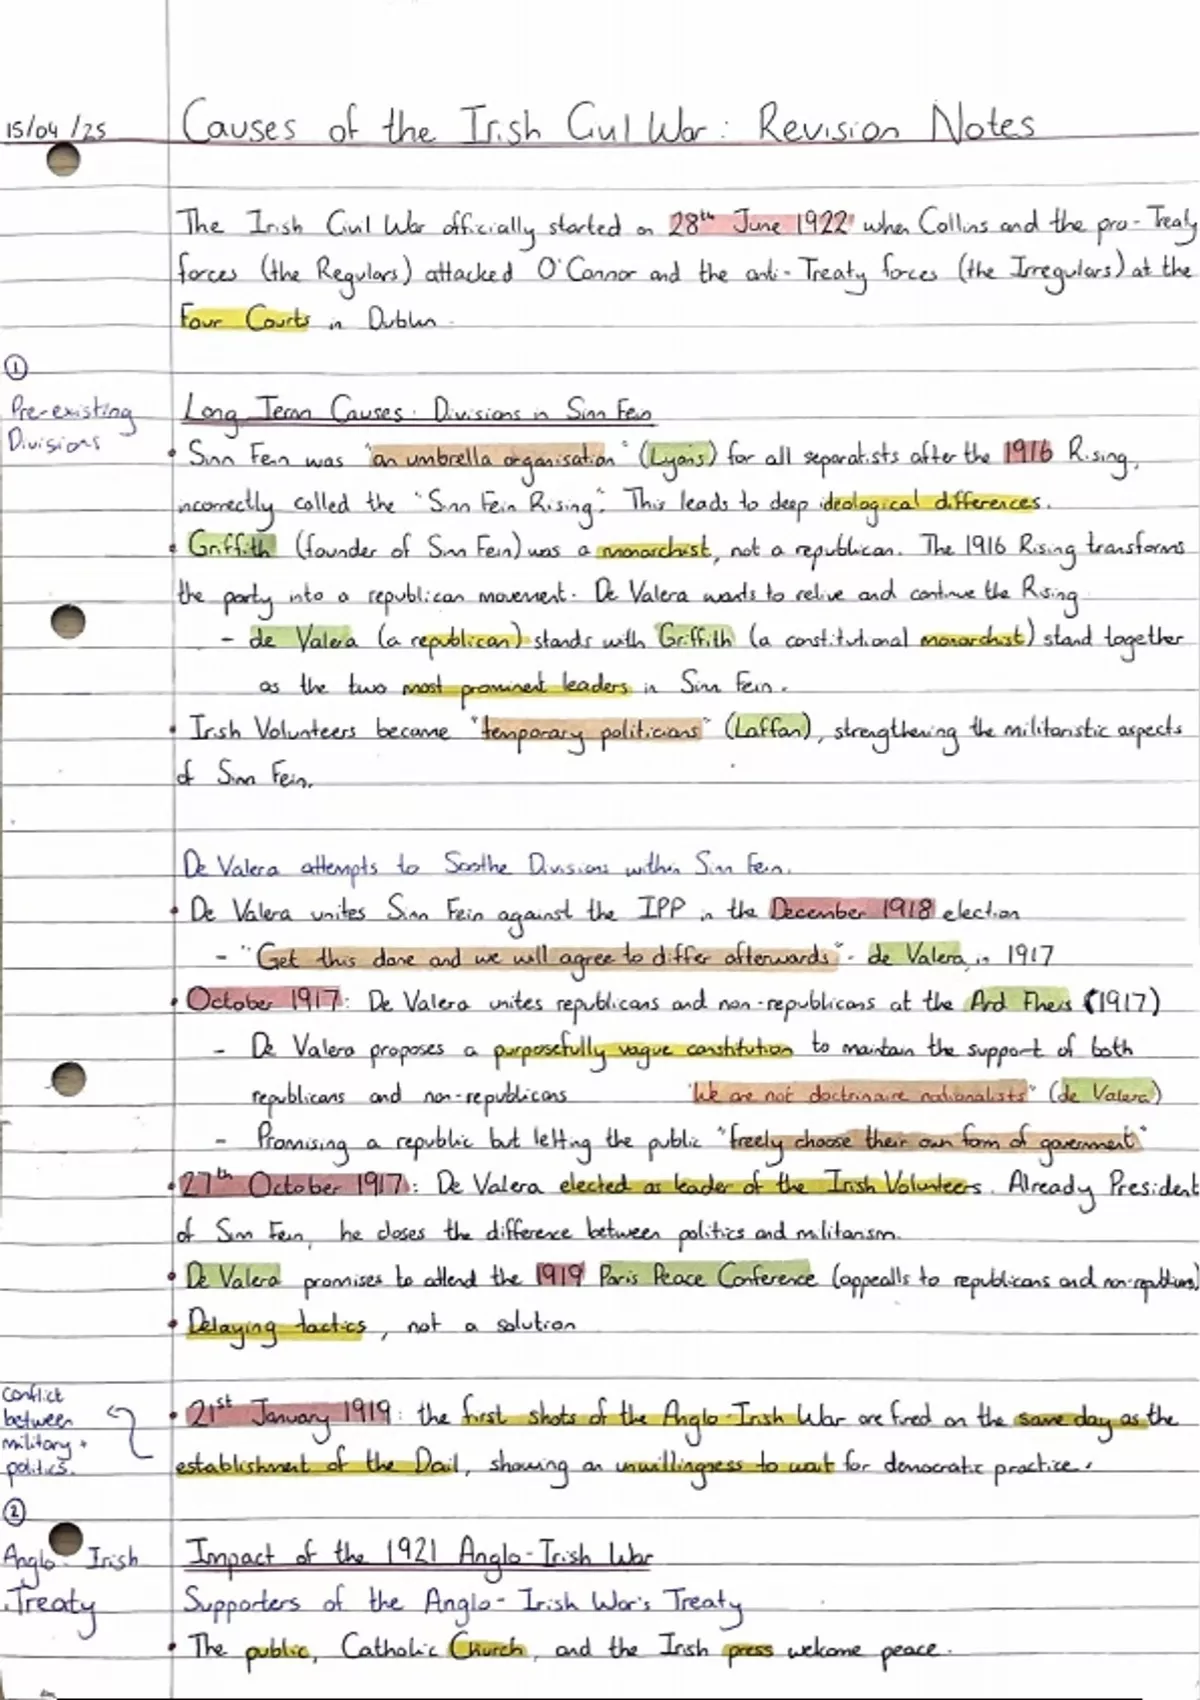 15/04/25
Causes of the Irish Civil War: Revision Notes
The Irish Civil War officially started on 28th June 1922 when Collins and the pro-Treaty
forces (the Regulars) attacked O'Connor and the anti-Treaty forces (the Irregulars) at the
Four Courts in Dublin.
①
Pre-existing
Divisions
Long Term Causes: Divisions in Sinn Fein
• Sinn Fein was "an umbrella organisation" (Lyons) for all separatists after the 1916 Rising,
incorrectly called the "Sinn Fein Rising". This leads to deep ideological differences.
• Griffith (founder of Sinn Fein) was a monarchist, not a republican. The 1916 Rising transforms
the party into a republican movement. De Valera wants to relive and continue the Rising
- de Valera (a republican) stands with Griffith (a constitutional monarchist) stand together
as the two most prominent leaders in Sinn Fein.
• Irish Volunteers became "temporary politicians" (Laffan), strengthening the militaristic aspects
of Sinn Fein.
De Valera attempts to Soothe Divisions within Sinn Fein.
• De Valera unites Sinn Fein against the IPP in the December 1918 election
- "Get this done and we will agree to differ afterwards" - de Valera in 1917
• October 1917: De Valera unites republicans and non-republicans at the Ard Fheis (1917)
- De Valera proposes a purposefully vague constitution to maintain the support of both
republicans and non-republicans "We are not doctrinaire nationalists" (de Valera)
- Promising a republic but letting the public "freely choose their own form of government"
• 27th October 1917: De Valera elected as leader of the Irish Volunteers. Already President
of Sinn Fein, he closes the difference between politics and militarism.
• De Valera promises to attend the 1919 Paris Peace Conference (appealls to republicans and non-republicans)
• Delaying tactics, not a solution
Conflict
between
military +
politics.
• 21st January 1919: the first shots of the Anglo-Irish War are fired on the same day as the
establishment of the Dail, showing an unwillingness to wait for democratic practice.
②
Anglo-Irish
Treaty
Impact of the 1921 Anglo-Irish War
Supporters of the Anglo-Irish War's Treaty
• The public, Catholic Church, and the Irish press welcome peace.